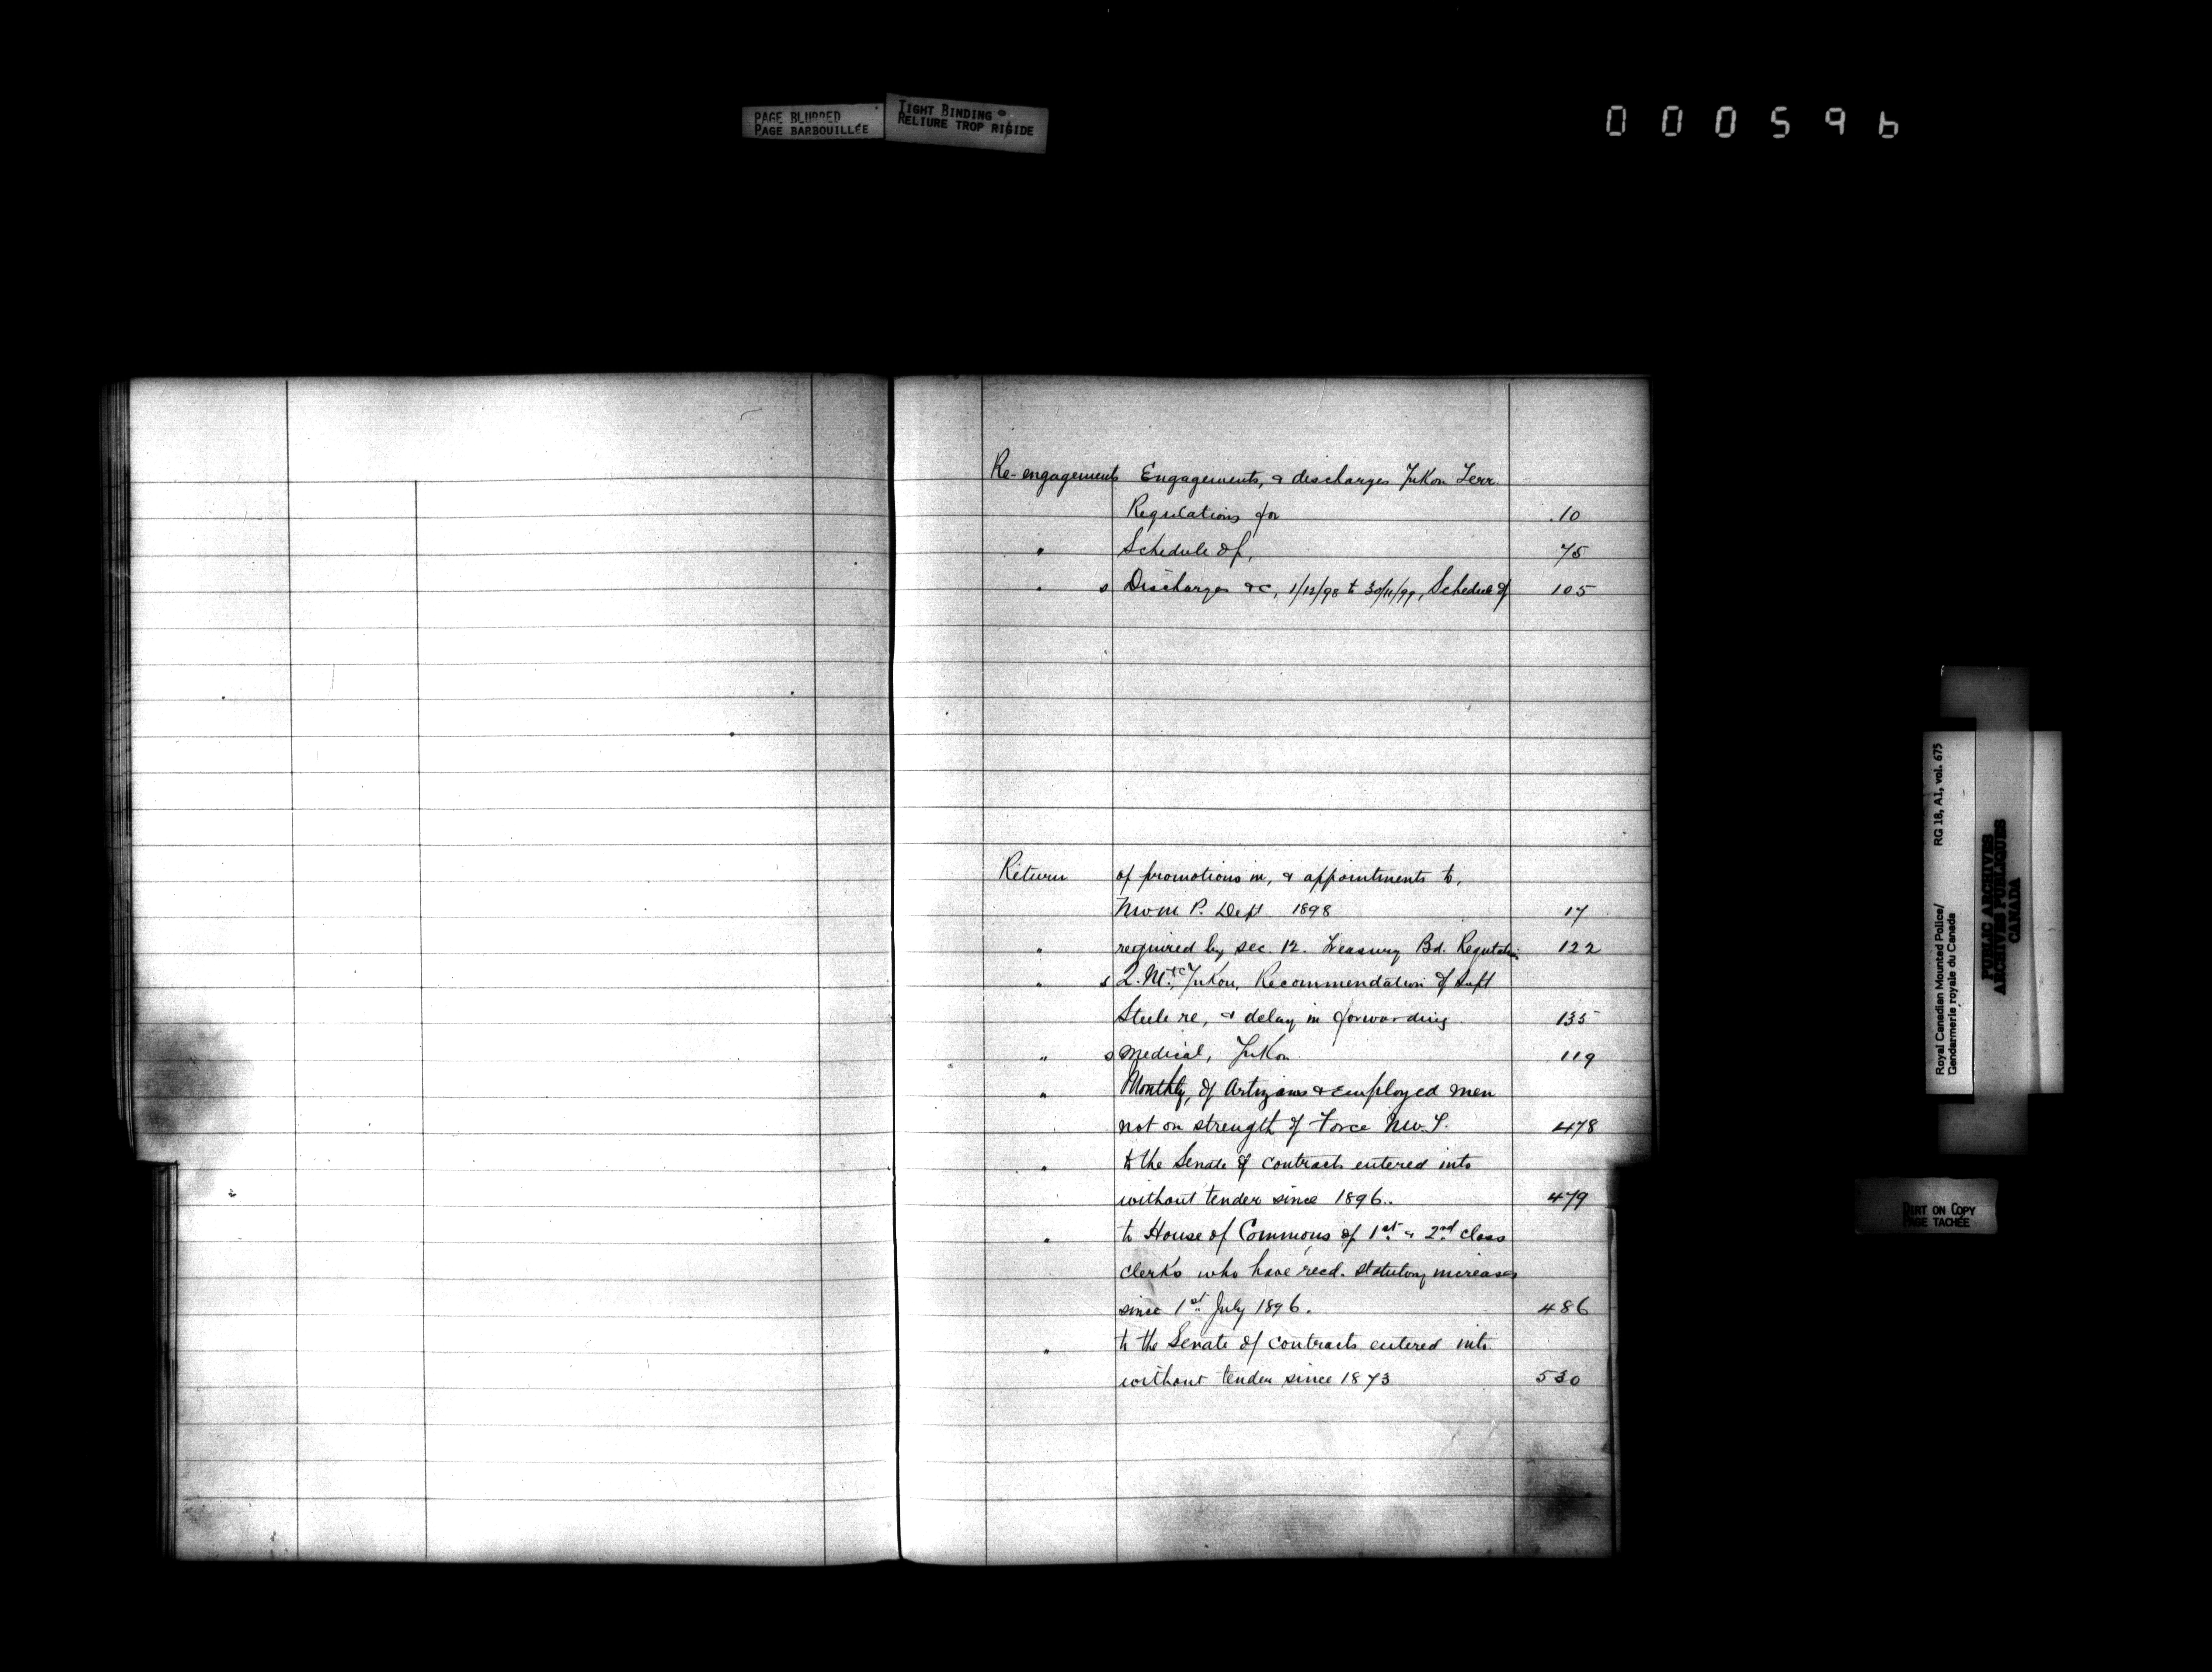 PAGE BLURRED
PAGE BARBOUILLÉE
TIGHT BINDING
RELIURE TROP RIGIDE
000596
Re-engagements Engagements, & discharges Yukon Terr.
Regulations for .10
" Schedule of, 75
" s Discharges &c, 1/12/98 to 30/11/99, Schedule of 105
Return of promotions in, & appointments to,
N.W.M.P. Dept 1898 17
" required by sec. 12. Treasury Bd. Regulation 122
" s Q.M. &c Yukon, Recommendation of Supt
Steele re, & delay in forwarding 135
" s medical, Yukon 119
" Monthly, of Artizans & employed men
not on strength of Force N.W.T. 478
" to the Senate of contracts entered into
without tender since 1896. 479
" to House of Commons of 1st & 2nd class
clerks who have recd. statutory increases
since 1st July 1896. 486
" to the Senate of contracts entered into
without tender since 1873 530
Royal Canadian Mounted Police/ RG 18, A1, vol. 675
Gendarmerie royale du Canada
PUBLIC ARCHIVES
ARCHIVES PUBLIQUES
CANADA
DIRT ON COPY
PAGE TACHÉE